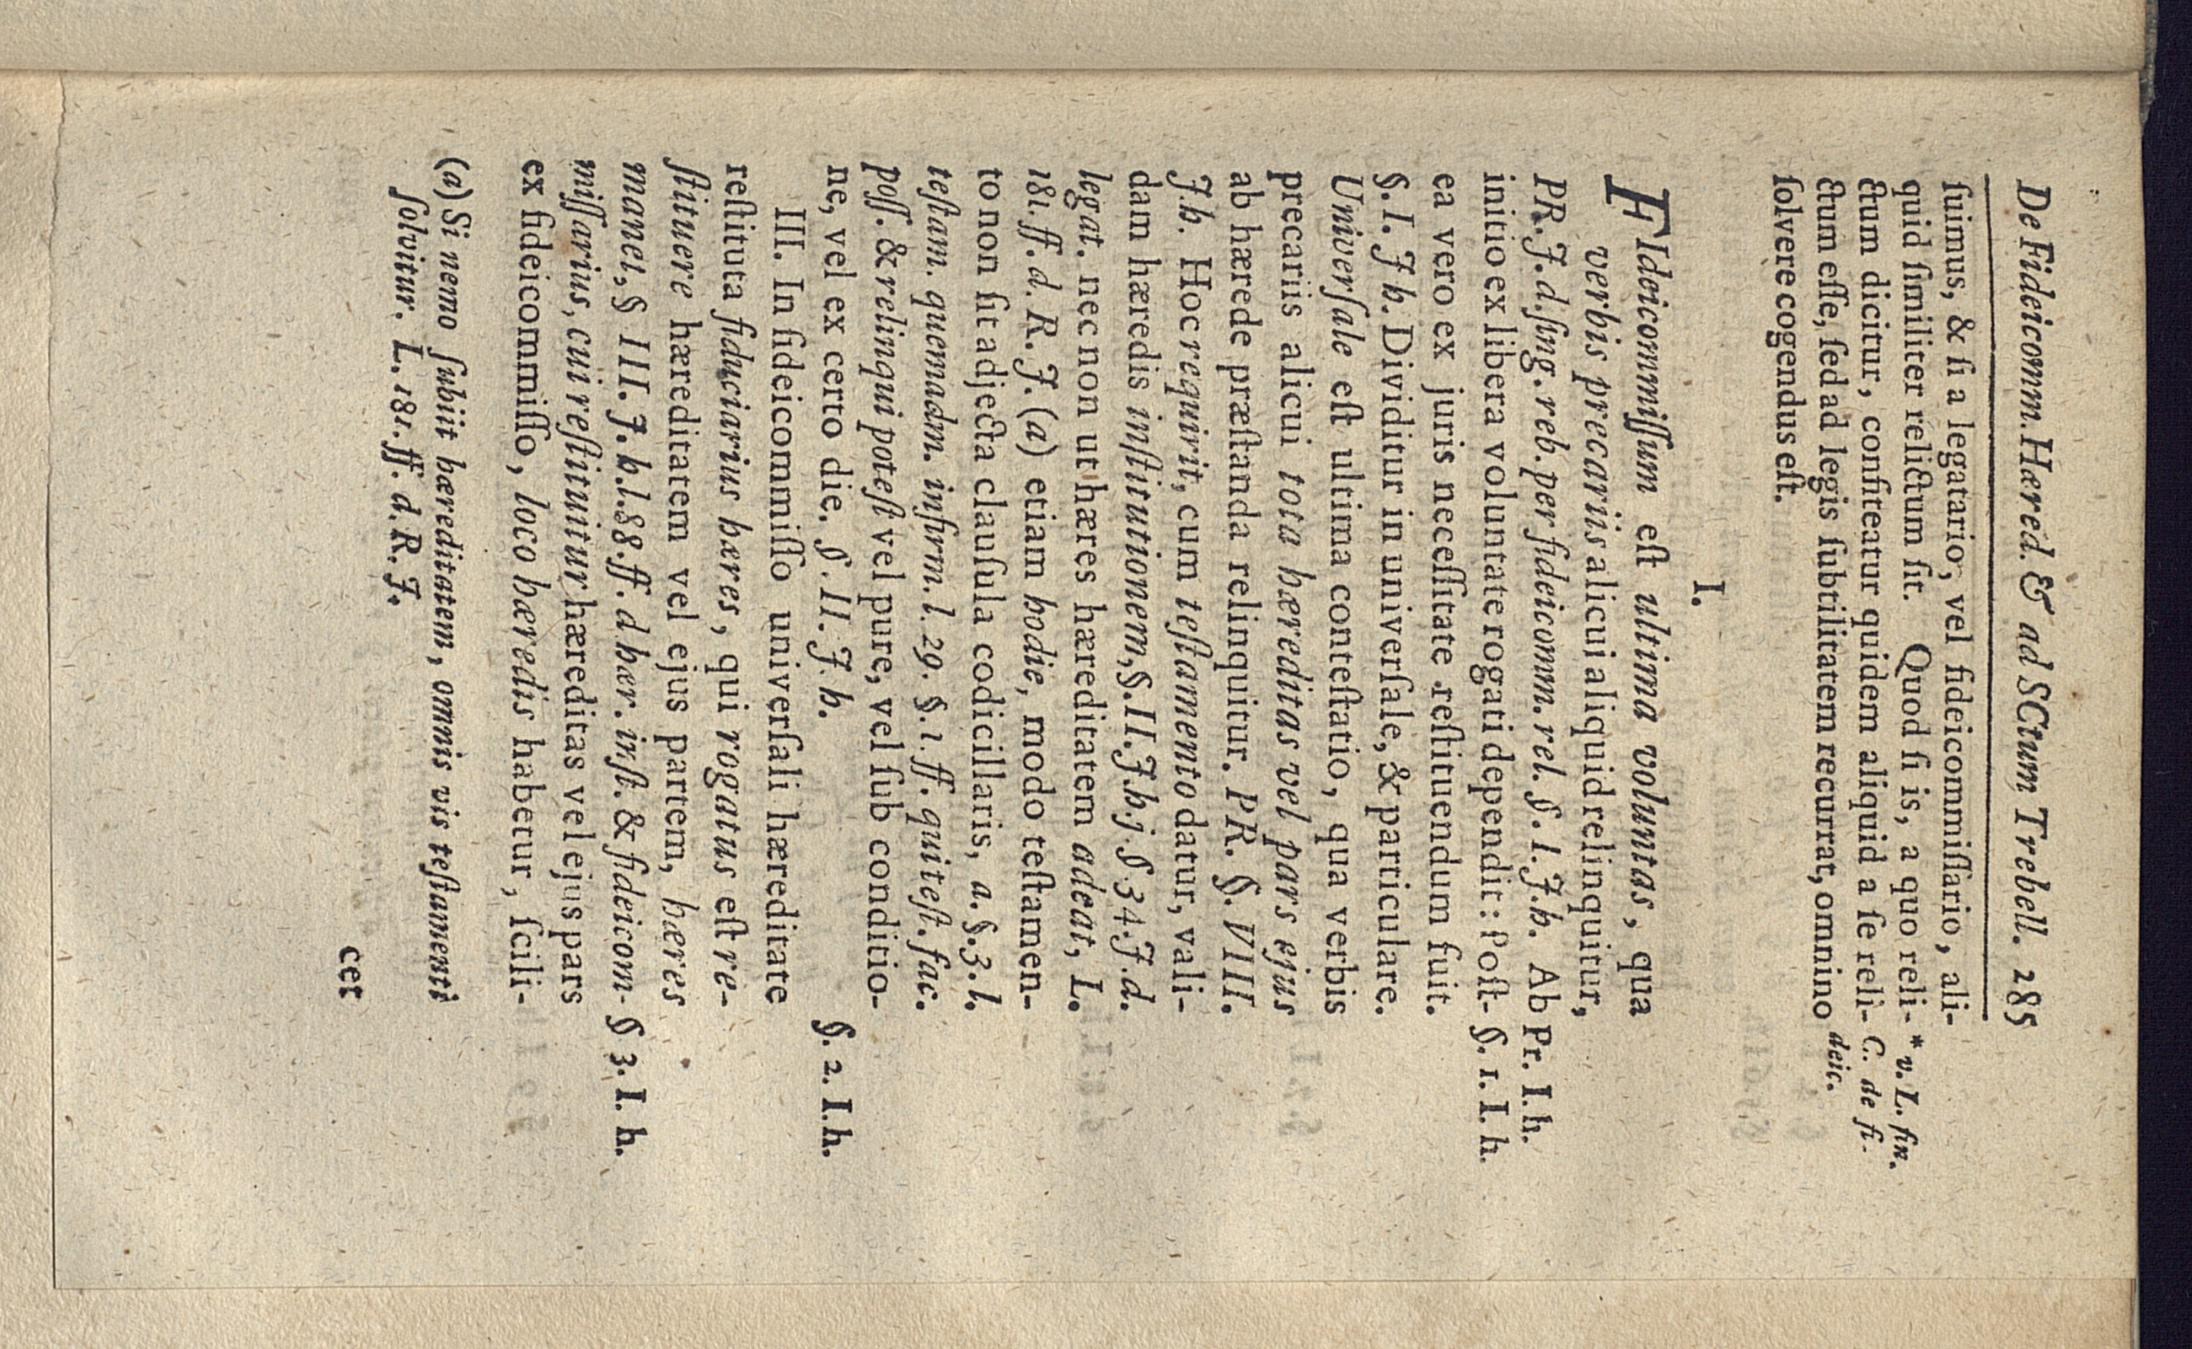 De Fideicomm. Hæred. & ad SCtum Trebell. 285
ſuimus, & ſi a legatario, vel fideicommiſſario, ali-
quid ſimiliter relictum ſit. Quod ſi is, a quo reli- * v. L. fin.
ctum dicitur, confiteatur quidem aliquid a ſe reli- C. de fi-
ctum eſſe, ſed ad legis ſubtilitatem recurrat, omnino deic.
ſolvere cogendus eſt.
I.
FIdeicommiſſum eſt ultima voluntas, qua
verbis precariis alicui aliquid relinquitur,
PR. J. d. ſing. reb. per fideicomm. rel. §. I. J. h. Ab Pr. I. h.
initio ex libera voluntate rogati dependit: Poſt- §. 1. I. h.
ea vero ex juris neceſſitate reſtituendum fuit.
§. I. J h. Dividitur in univerſale, & particulare.
Univerſale eſt ultima conteſtatio, qua verbis
precariis alicui tota hæreditas vel pars ejus
ab hærede præſtanda relinquitur. PR. §. VIII.
J. h. Hoc requirit, cum teſtamento datur, vali-
dam hæredis inſtitutionem, §. II. J. h. j. §. 34. J. d.
legat. nec non ut hæres hæreditatem adeat, L.
181. ff. d. R. J. (a) etiam hodie, modo teſtamen-
to non ſit adjecta clauſula codicillaris, a. §. 3. l.
teſtam. quemadm. infirm. l. 29. §. 1. ff. qui teſt. fac.
poſſ. & relinqui poteſt vel pure, vel ſub conditio-
ne, vel ex certo die. §. II. J. h. §. 2. I. h.
III. In fideicommiſſo univerſali hæreditate
reſtituta fiduciarius hæres, qui rogatus eſt re-
ſtituere hæreditatem vel ejus partem, hæres
manet, § III. J. h. l. 88. ff. d hær. inſt. & fideicom- § 3. I. h.
miſſarius, cui reſtituitur hæreditas vel ejus pars
ex fideicommiſſo, loco hæredis habetur, ſcili-
(a) Si nemo ſubiit hæreditatem, omnis vis teſtamenti
ſolvitur. L. 181. ff. d. R. J.
cet